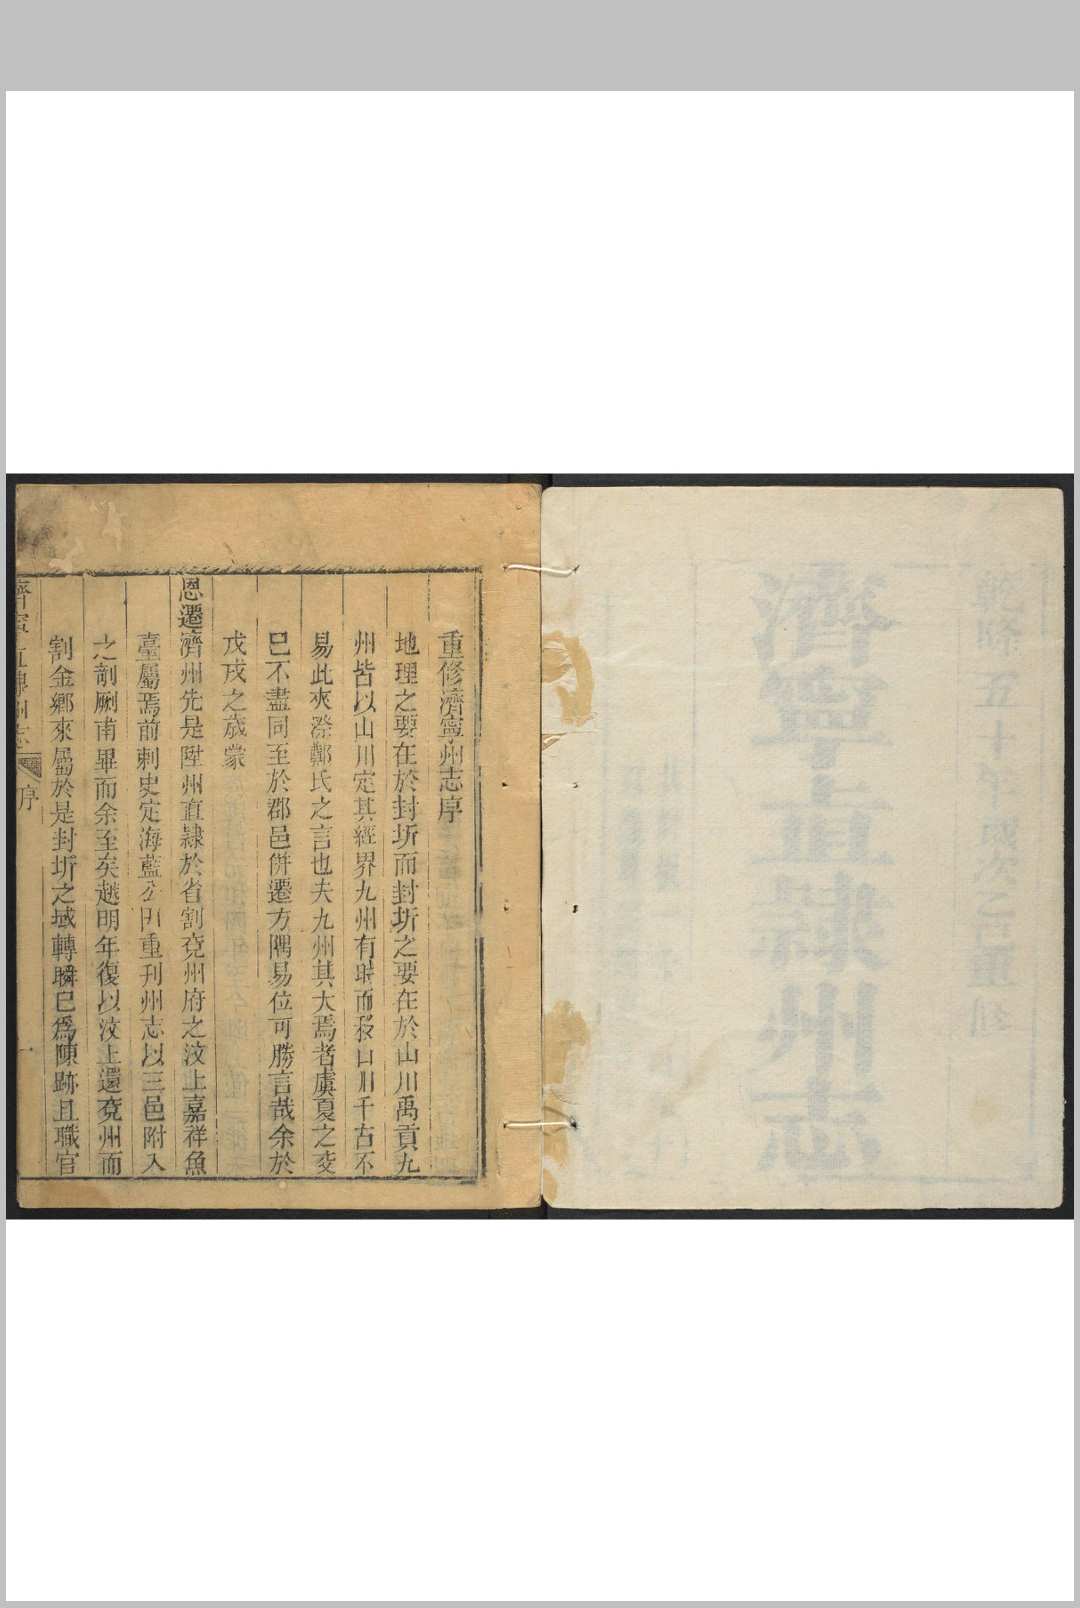 乾隆五十年歲次乙巳重修
濟寧直隸州志
重修濟寧州志序
地理之要在於封圻而封圻之要在於山川禹貢九
州皆以山川定其經界九州有時而移山川千古不
易此夾漈鄭氏之言也夫九州其大焉者虞夏之交
巳不盡同至於郡邑併遷方隅易位可勝言哉余於
戊戌之歲蒙
恩遷濟州先是陞州直隸於省割兗州府之汶上嘉祥魚
臺屬焉前刺史定海藍公因重刊州志以三邑附入
之剞劂甫畢而余至矣越明年復以汶上還兗州而
割金鄉來屬於是封圻之域轉瞬巳爲陳跡且職官
濟寧直隸州志
序
一